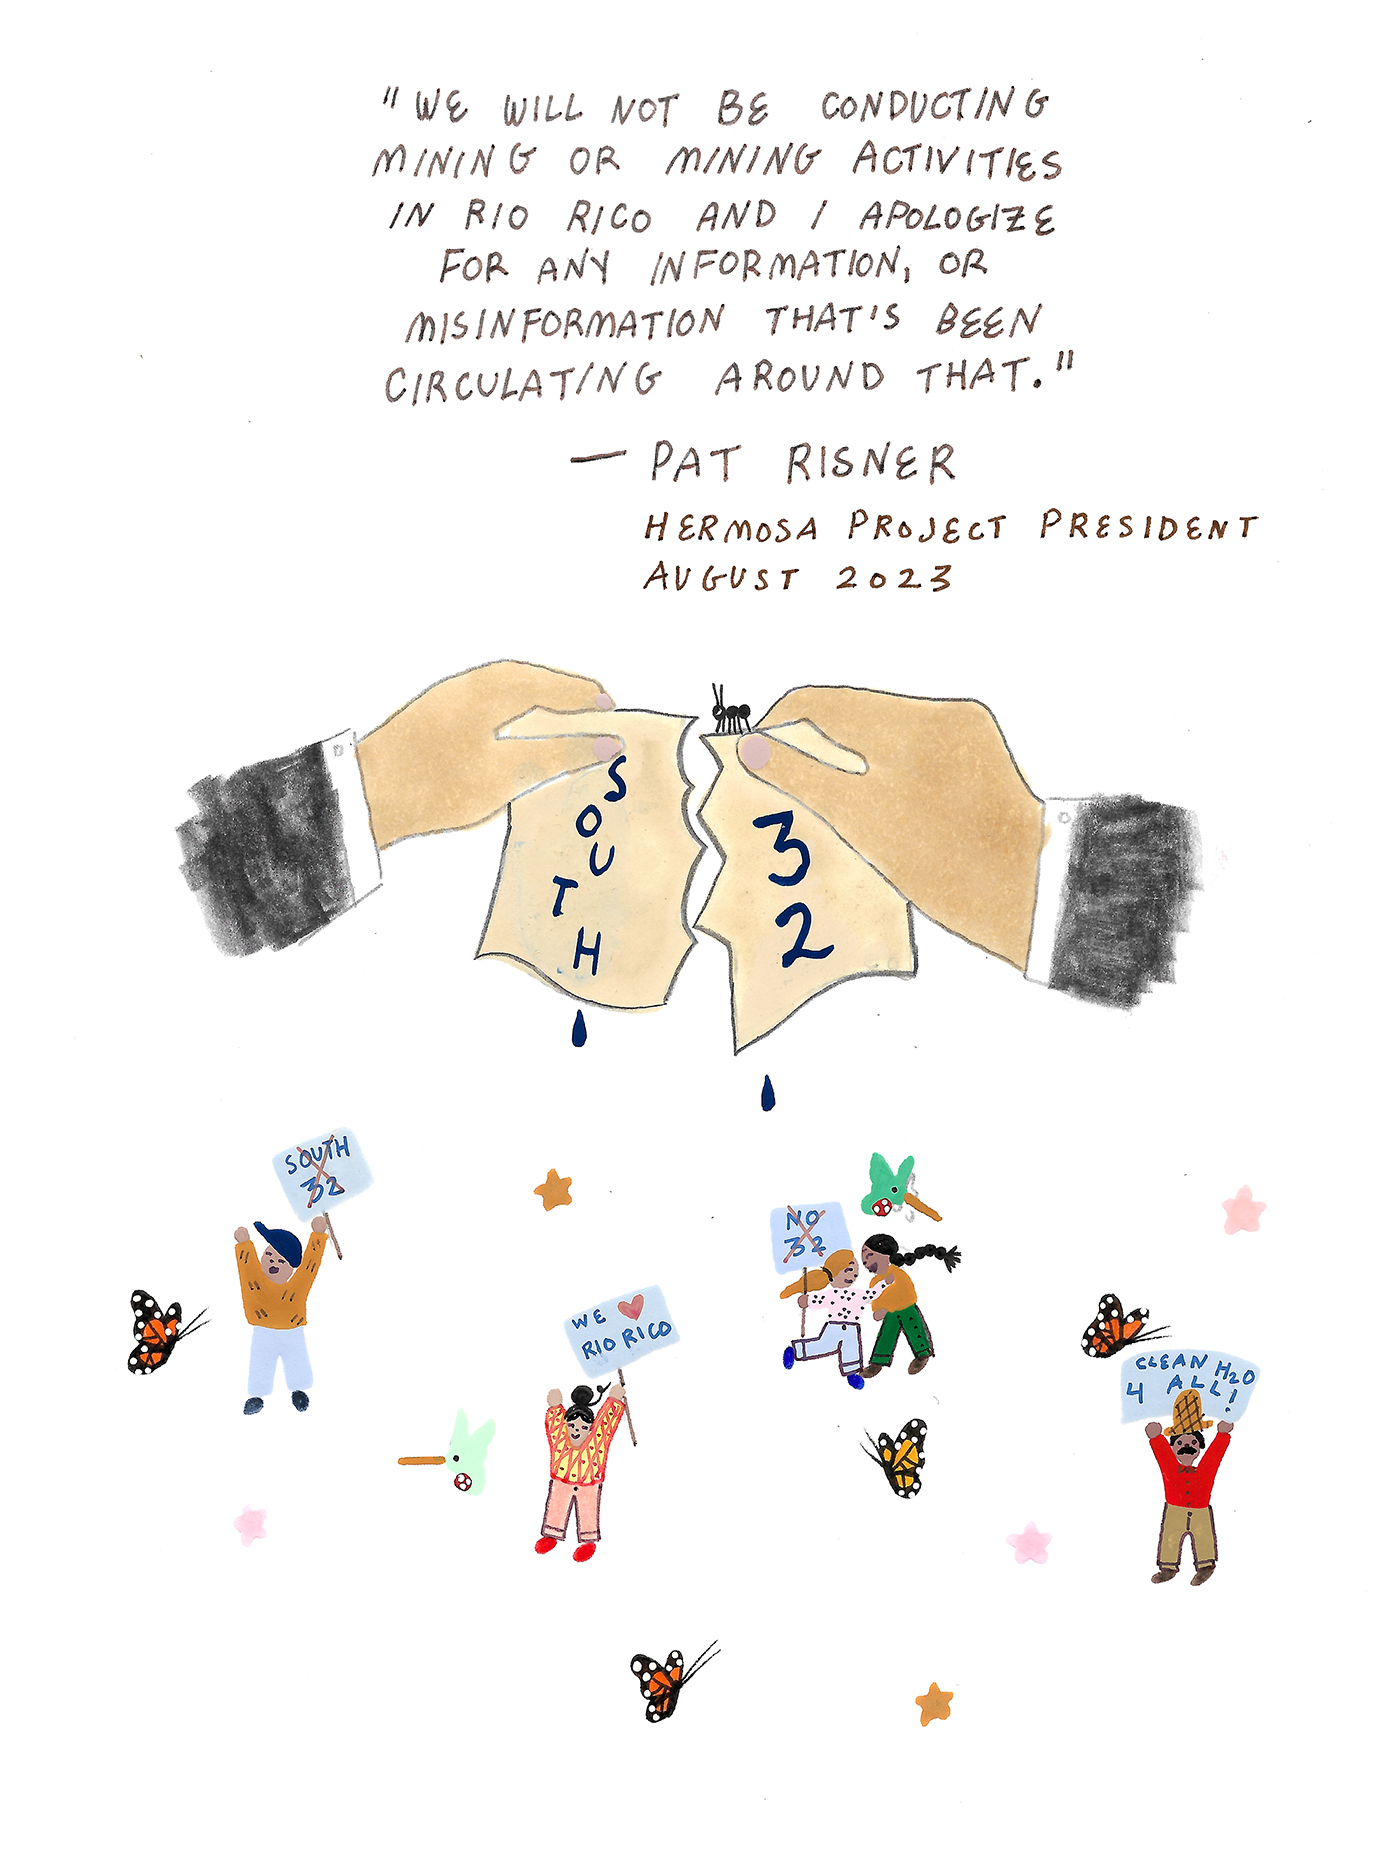 "WE WILL NOT BE CONDUCTING
MINING OR MINING ACTIVITIES
IN RIO RICO AND I APOLOGIZE
FOR ANY INFORMATION, OR
MISINFORMATION THAT'S BEEN
CIRCULATING AROUND THAT."
— PAT RISNER
HERMOSA PROJECT PRESIDENT
AUGUST 2023
SOUTH
32
SOUTH
32
NO
32
WE ❤
RIO RICO
CLEAN H2O
4 ALL!